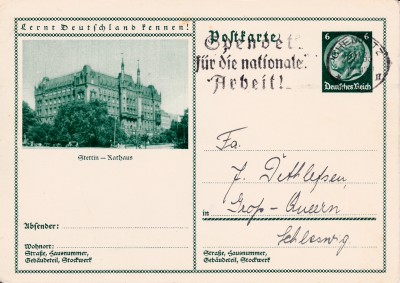 Lernt Deutschland kennen!
Stettin – Rathaus
Absender:
Wohnort:
Straße, Hausnummer,
Gebäudeteil, Stockwerk
Postkarte
6 6
Deutsches Reich
Spendet
für die nationale
Arbeit!
Fa.
J. Dethlefsen,
in Groß-Quern
Schleswig
Straße, Hausnummer,
Gebäudeteil, Stockwerk